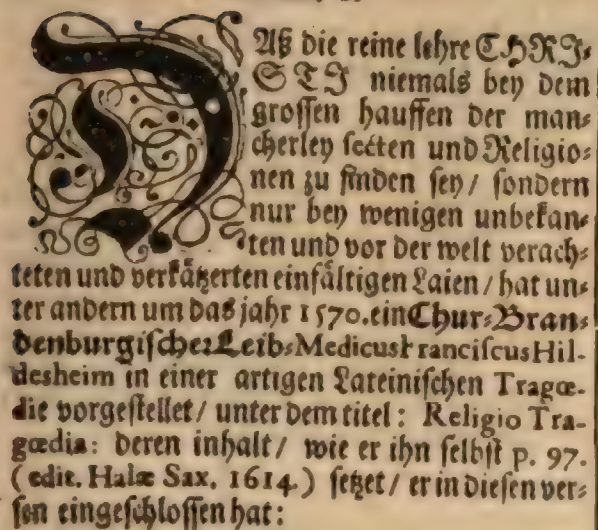 DAß die reine lehre CHRI-
STI niemals bey dem
grossen hauffen der man-
cherley secten und Religio-
nen zu finden sey / sondern
nur bey wenigen unbekan-
ten und vor der welt verach-
teten und verkätzerten einfältigen Laien / hat un-
ter andern um das jahr 1570. ein Chur-Bran-
denburgischer Leib-Medicus Franciscus Hil-
desheim in einer artigen Lateinischen Tragœ-
die vorgestellet / unter dem titel: Religio Tra-
gœdia: deren inhalt / wie er ihn selbst p. 97.
(edit. Halæ Sax. 1614.) setzet / er in diesen ver-
sen eingeschlossen hat: